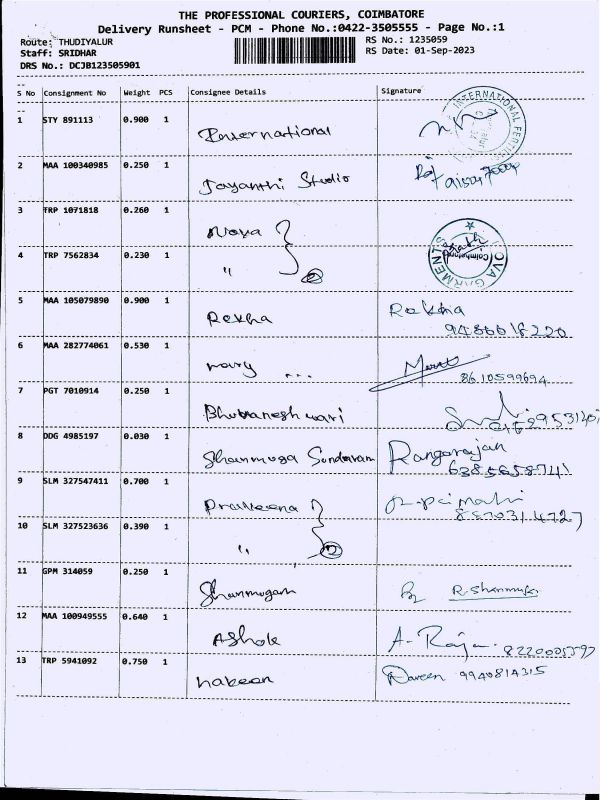 THE PROFESSIONAL COURIERS, COIMBATORE
Delivery Runsheet - PCM - Phone No.:0422-3505555 - Page No.:1
Route: THUDIYALUR RS No.: 1235059
Staff: SRIDHAR RS Date: 01-Sep-2023
DRS No.: DCJB123505901
S No Consignment No Weight PCS Consignee Details Signature
1 STY 891113 0.900 1 International
2 MAA 100340985 0.250 1 Jayanthi Studio
3 TRP 1071818 0.260 1 Nova
4 TRP 7562834 0.230 1 " 2
5 MAA 105079890 0.900 1 Rekha Rekha
9486618220
6 MAA 282774061 0.530 1 mary ...
8610599694
7 PGT 7010914 0.250 1 Bhuvaneshwari
8 DDG 4985197 0.030 1 Shanmuga Sundaram Rangarajan
6385658741
9 SLM 327547411 0.700 1 Praveena
10 SLM 327523636 0.390 1 " 2
11 GPM 314059 0.250 1 Shanmugam
12 MAA 100949555 0.640 1 Ashok A. Raja
13 TRP 5941092 0.750 1 naveen Naveen 9940814315